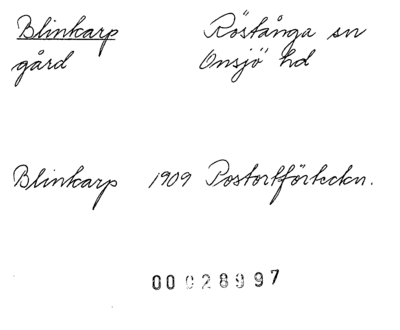 Blinkarp Röstånga sn
gård Onsjö hd
Blinkarp 1909 Postortförteckn.
00028997